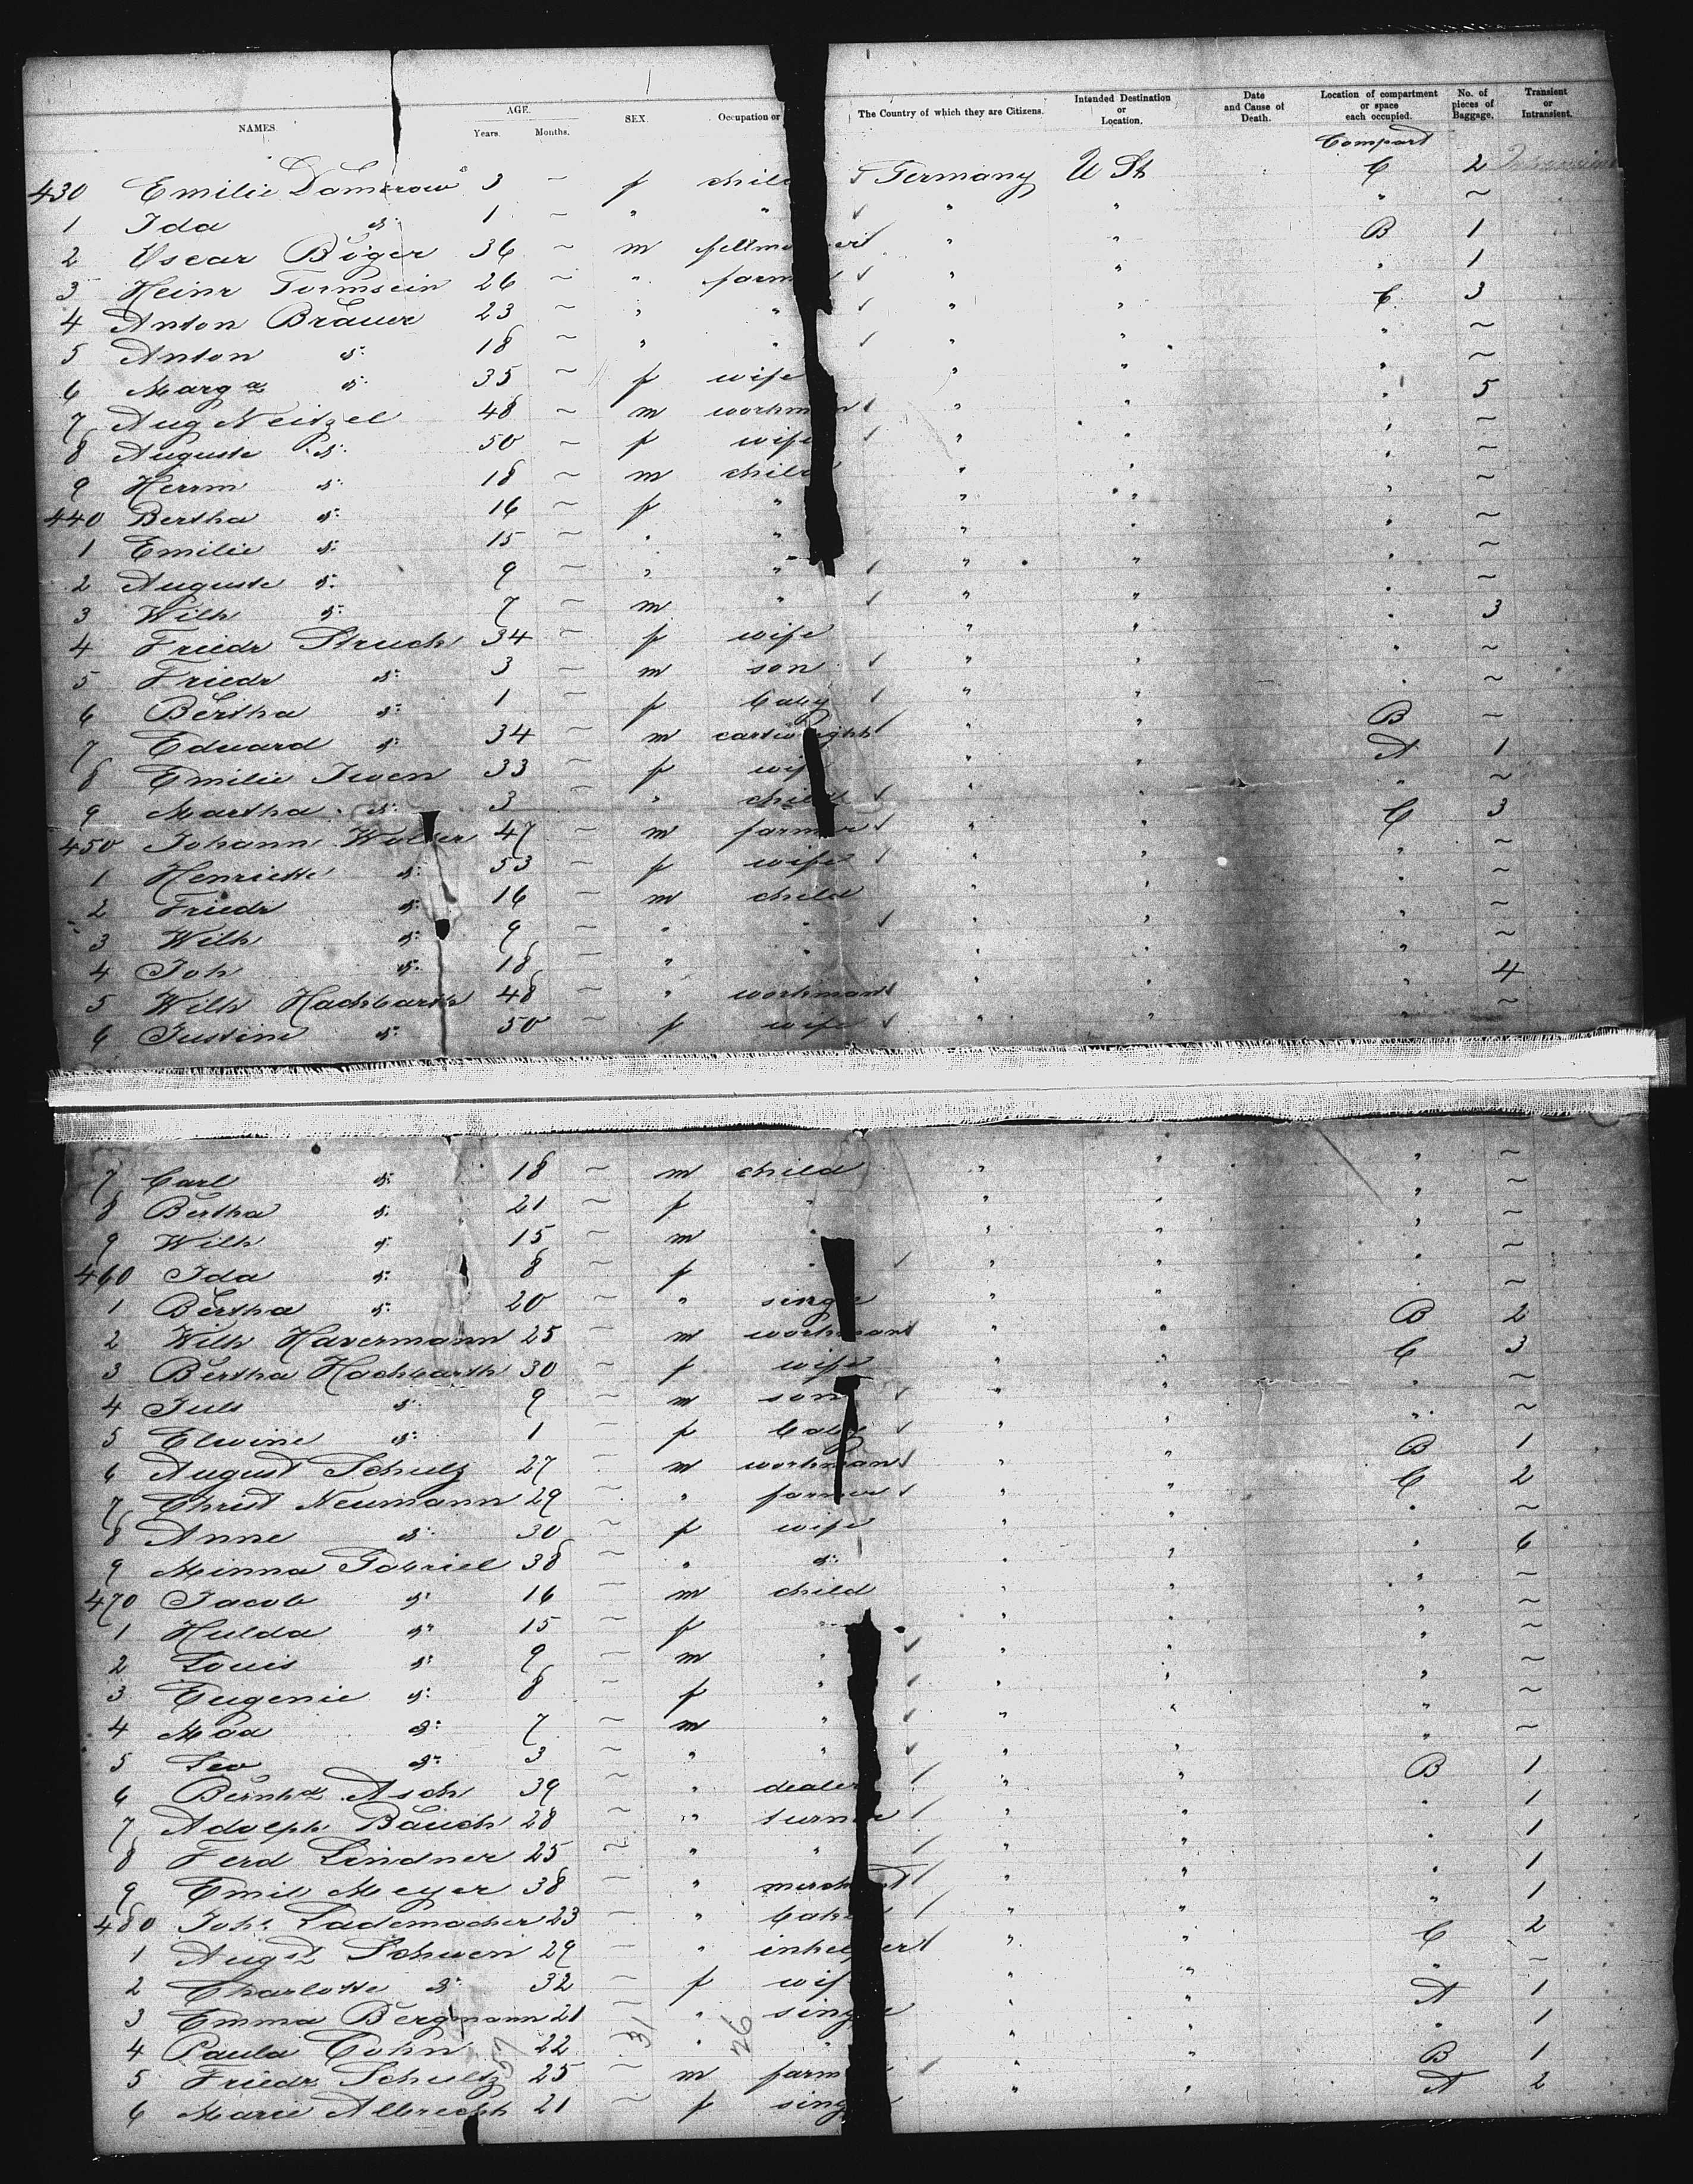 NAMES. AGE. Years. Months. SEX. Occupation or The Country of which they are Citizens. Intended Destination or Location. Date and Cause of Death. Location of compartment or space each occupied. No. of pieces of Baggage. Transient or Intransient.
Compart
430 Emilie Damerow 3 ~ f child Germany U St C 2
1 Ida d: 1 ~ " " " " " ~
2 Oscar Böger 36 ~ m " " B 1
3 Heinr 26 ~ " farm " " " 1
4 Anton Bräuer 23 ~ " " " " C 3
5 Anton d: 18 ~ " " " " " ~
6 Marga d: 35 ~ f wife " " " ~
7 Aug Neitzel 48 ~ m workman " " " 5
8 Auguste d: 50 ~ f wife " " " ~
9 Herrm d: 18 ~ m child " " " ~
440 Bertha d: 16 ~ f " " " " ~
1 Emilie d: 15 ~ " " " " " ~
2 Auguste d: 9 ~ " " " " " ~
3 Wilh d: 7 ~ m " " " " ~
4 Friedr Struck 34 ~ f wife " " " 3
5 Friedr d: 3 ~ m son " " " ~
6 Bertha d: 1 ~ f baby " " " ~
7 Eduard d: 34 ~ m cartwright " " B ~
8 Emilie Iwen 33 ~ f wife " " A 1
9 Martha d: 3 ~ " child " " " ~
450 Johann Wolter 47 ~ m farmer " " C 3
1 Henriette d: 53 ~ f wife " " " ~
2 Friedr d: 16 ~ m child " " " ~
3 Wilh d: 9 ~ " " " " " ~
4 Joh d: 18 ~ " " " " " ~
5 Wilh Hackbarth 48 ~ " workman " " " 4
6 Justine d: 50 ~ f wife " " " ~
7 Carl d: 18 ~ m child " " " ~
8 Bertha d: 21 ~ f " " " " ~
9 Wilh d: 15 ~ m " " " " ~
460 Ida d: 8 ~ f " " " " ~
1 Bertha d: 20 ~ " single " " " ~
2 Wilh Havermann 25 ~ m workman " " B 2
3 Bertha Hackbarth 30 ~ f wife " " C 3
4 Juls d: 9 ~ m son " " " ~
5 Elwine d: 1 ~ f baby " " " ~
6 August Schulz 27 ~ m workman " " B 1
7 Christ Neumann 29 ~ " farmer " " C 2
8 Anne d: 30 ~ f wife " " " ~
9 Minna Gabriel 38 ~ " d: " " " 6
470 Jacob d: 16 ~ m child " " " ~
1 Hulda d: 15 ~ f " " " " ~
2 Louis d: 9 ~ m " " " " ~
3 Eugenie d: 8 ~ f " " " " ~
4 Max d: 7 ~ m " " " " ~
5 Leo d: 3 ~ " " " " " ~
6 Bernhd Asch 39 ~ " dealer " " B 1
7 Adolph Bauch 28 ~ " turner " " " 1
8 Ferd Lindner 25 ~ " " " " " 1
9 Emil Meyer 38 ~ " merchant " " " 1
480 Johs Lademacher 23 ~ " baker " " " 1
1 Augst Schwen 29 ~ " " " C 2
2 Charlotte d: 32 ~ f wife " " " ~
3 Emma Bergmann 21 ~ " single " " A 1
4 Paula Cohn 22 " " " " " 1
5 Friedr Schultz 25 ~ m farm " " B 1
6 Marie Albrecht 21 ~ f single " " A 2
26